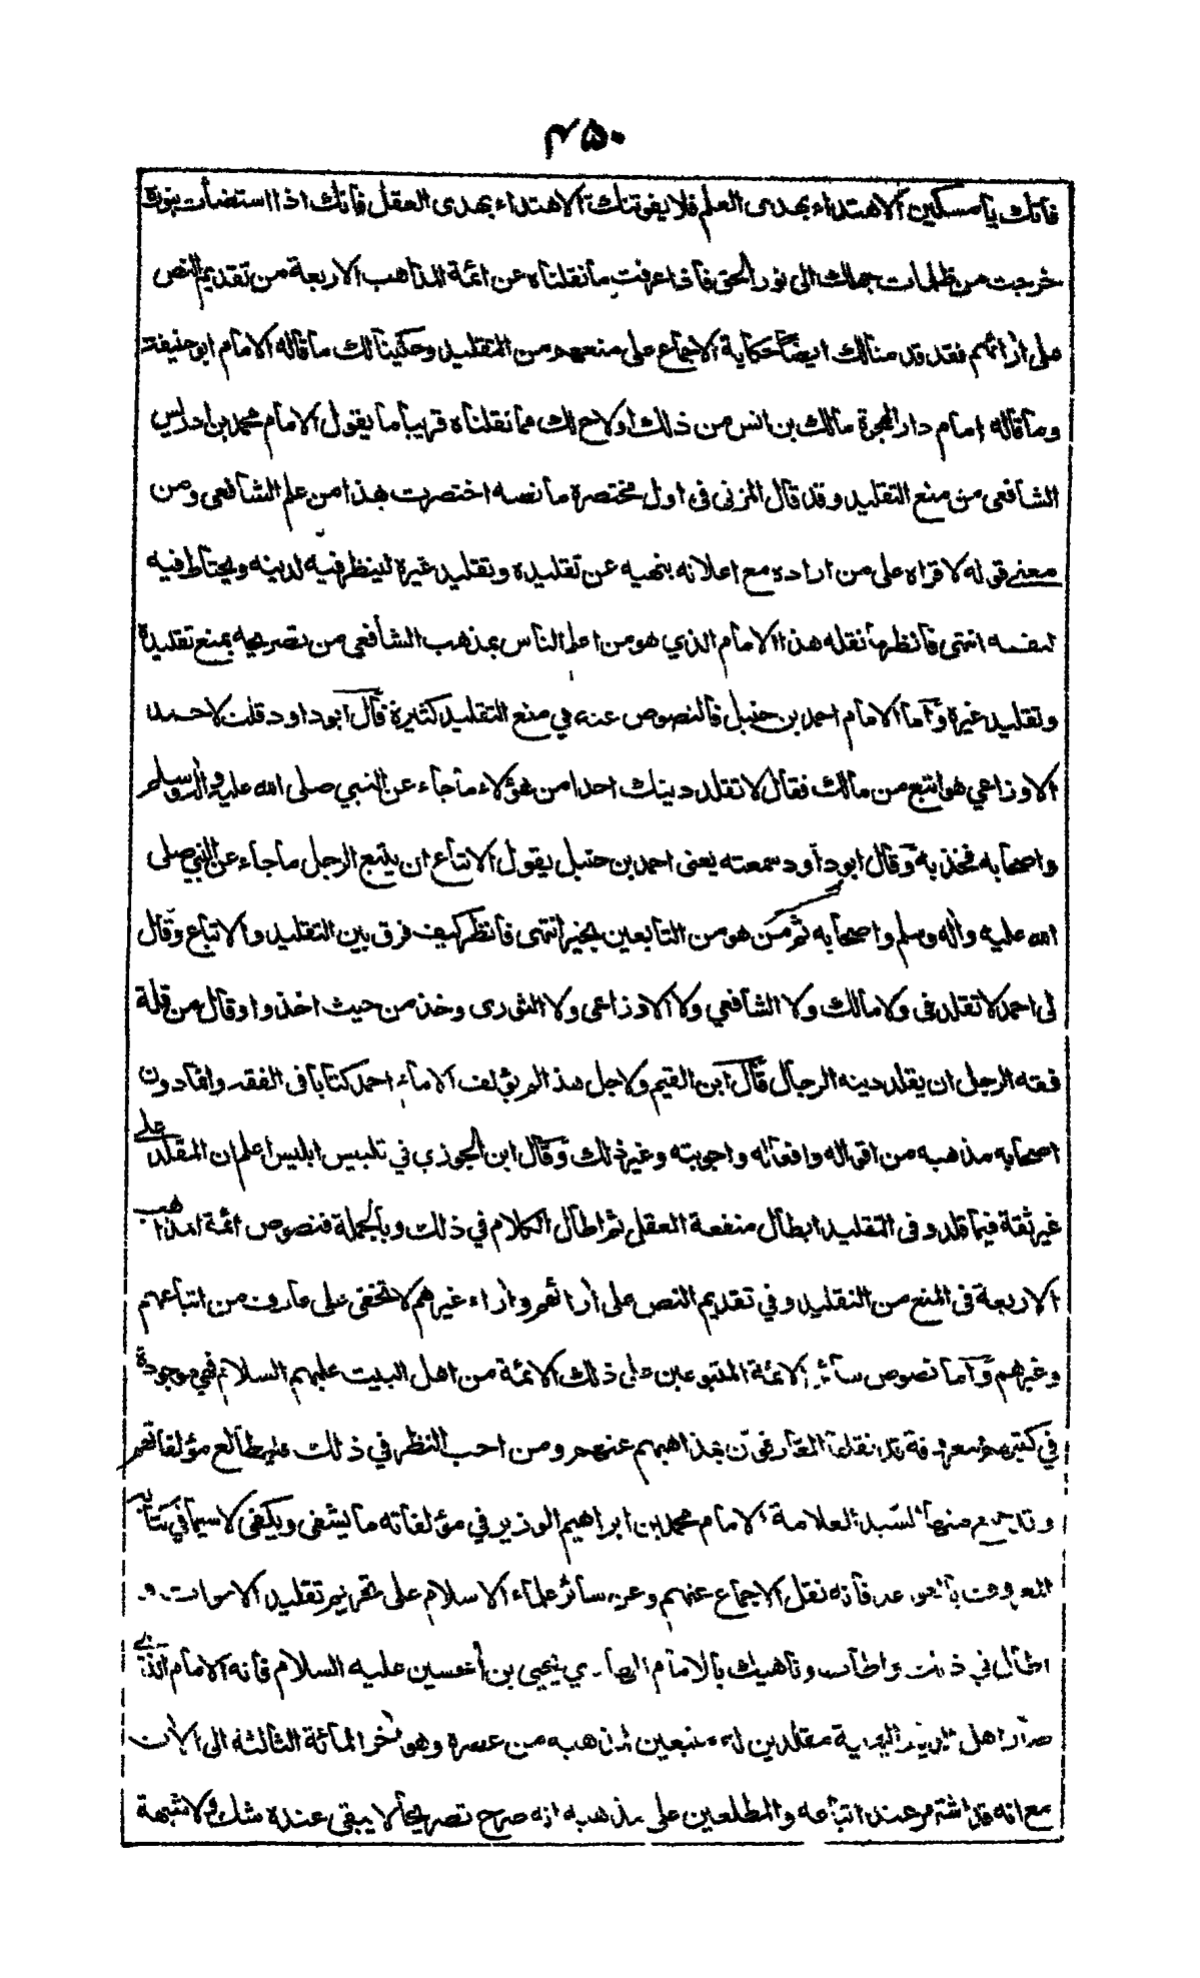 ۴۵۰
فاتك يا مسكين الاهتداء بهدى العلم فلا يفوتنك الاهتداء بهدى العقل فانك اذا استضأت بنوره
خرجت من ظلمات جهلك الى نور الحق فاذا عرفت ما نقلناه عن ائمة المذاهب الاربعة من تقديم النص
على ارائهم فقد قدمنا لك ايضا حكاية الاجماع على منعهم من التقليد وحكينا لك ما قاله الامام ابو حنيفة
وما قاله امام دار الهجرة مالك بن انس من ذلك ولاح لك مما نقلناه قريبا ما يقول الامام محمد بن ادريس
الشافعى من منع التقليد وقد قال المزنى فى اول مختصره ما نصه اختصرت هذا من علم الشافعى ومن
معنى قوله لاقراه على من اراده مع اعلانه بنهيه عن تقليده وتقليد غيره لينظر فيه لدينه ويحتاط فيه
لنفسه انتهى فانظر ما نقله هذا الامام الذي هو من اعلم الناس بمذهب الشافعي من تصريحه بمنع تقليده
وتقليد غيره وأما الامام احمد بن حنبل فالنصوص عنه في منع التقليد كثيرة قال ابو داود قلت لاحمد
الاوزاعي هو اتبع من مالك فقال لا تقلد دينك احدا من هؤلاء ما جاء عن النبي صلى الله عليه واله وسلم
واصحابه فخذ به وقال ابو داود سمعته يعنى احمد بن حنبل يقول الاتباع ان يتبع الرجل ما جاء عن النبي صلى
الله عليه واله وسلم واصحابه ثم من هو من التابعين بخير انتهى فانظر كيف فرق بين التقليد والاتباع وقال
لى احمد لا تقلدنى ولا مالك ولا الشافعي ولا الاوزاعى ولا الثورى وخذ من حيث اخذوا وقال من قلة
فقه الرجل ان يقلد دينه الرجال قال ابن القيم ولاجل هذا لم يؤلف الامام احمد كتابا فى الفقه وانما دون
اصحابه مذهبه من اقواله وافعاله واجوبته وغير ذلك وقال ابن الجوزي في تلبيس ابليس اعلم ان المقلد على
غير ثقة فيما قلد وفى التقليد ابطال منفعة العقل ثم اطال الكلام في ذلك وبالجملة فنصوص ائمة المذاهب
الاربعة فى المنع من التقليد وفي تقديم النص على ارائهم واراء غيرهم لا تخفى على عارف من اتباعهم
وغيرهم وأما نصوص سائر الائمة المتبوعين على ذلك الائمة من اهل البيت عليهم السلام فهي موجودة
في كتبهم معروفة قد نقلها العارفون بمذاهبهم عنهم ومن احب النظر في ذلك فليطالع مؤلفاتهم
وقد جمع منها السيد العلامة الامام محمد بن ابراهيم الوزير في مؤلفاته ما يشفى ويكفى لا سيما في كتابه
المعروف بالقواعد فانه نقل الاجماع عنهم وعن سائر علماء الاسلام على تحريم تقليد الاموات و
اطال في ذلك واطاب وناهيك بالامام الهادي يحيى بن الحسين عليه السلام فانه الامام الذي
صار اهل الديار اليمنية مقلدين له متبعين لمذهبه من عصره وهو اخر المائة الثالثة الى الان
مع انه قد اشتهر عند اتباعه والمطلعين على مذهبه انه صرح تصريحا لا يبقى عنده شك ولا شبهة